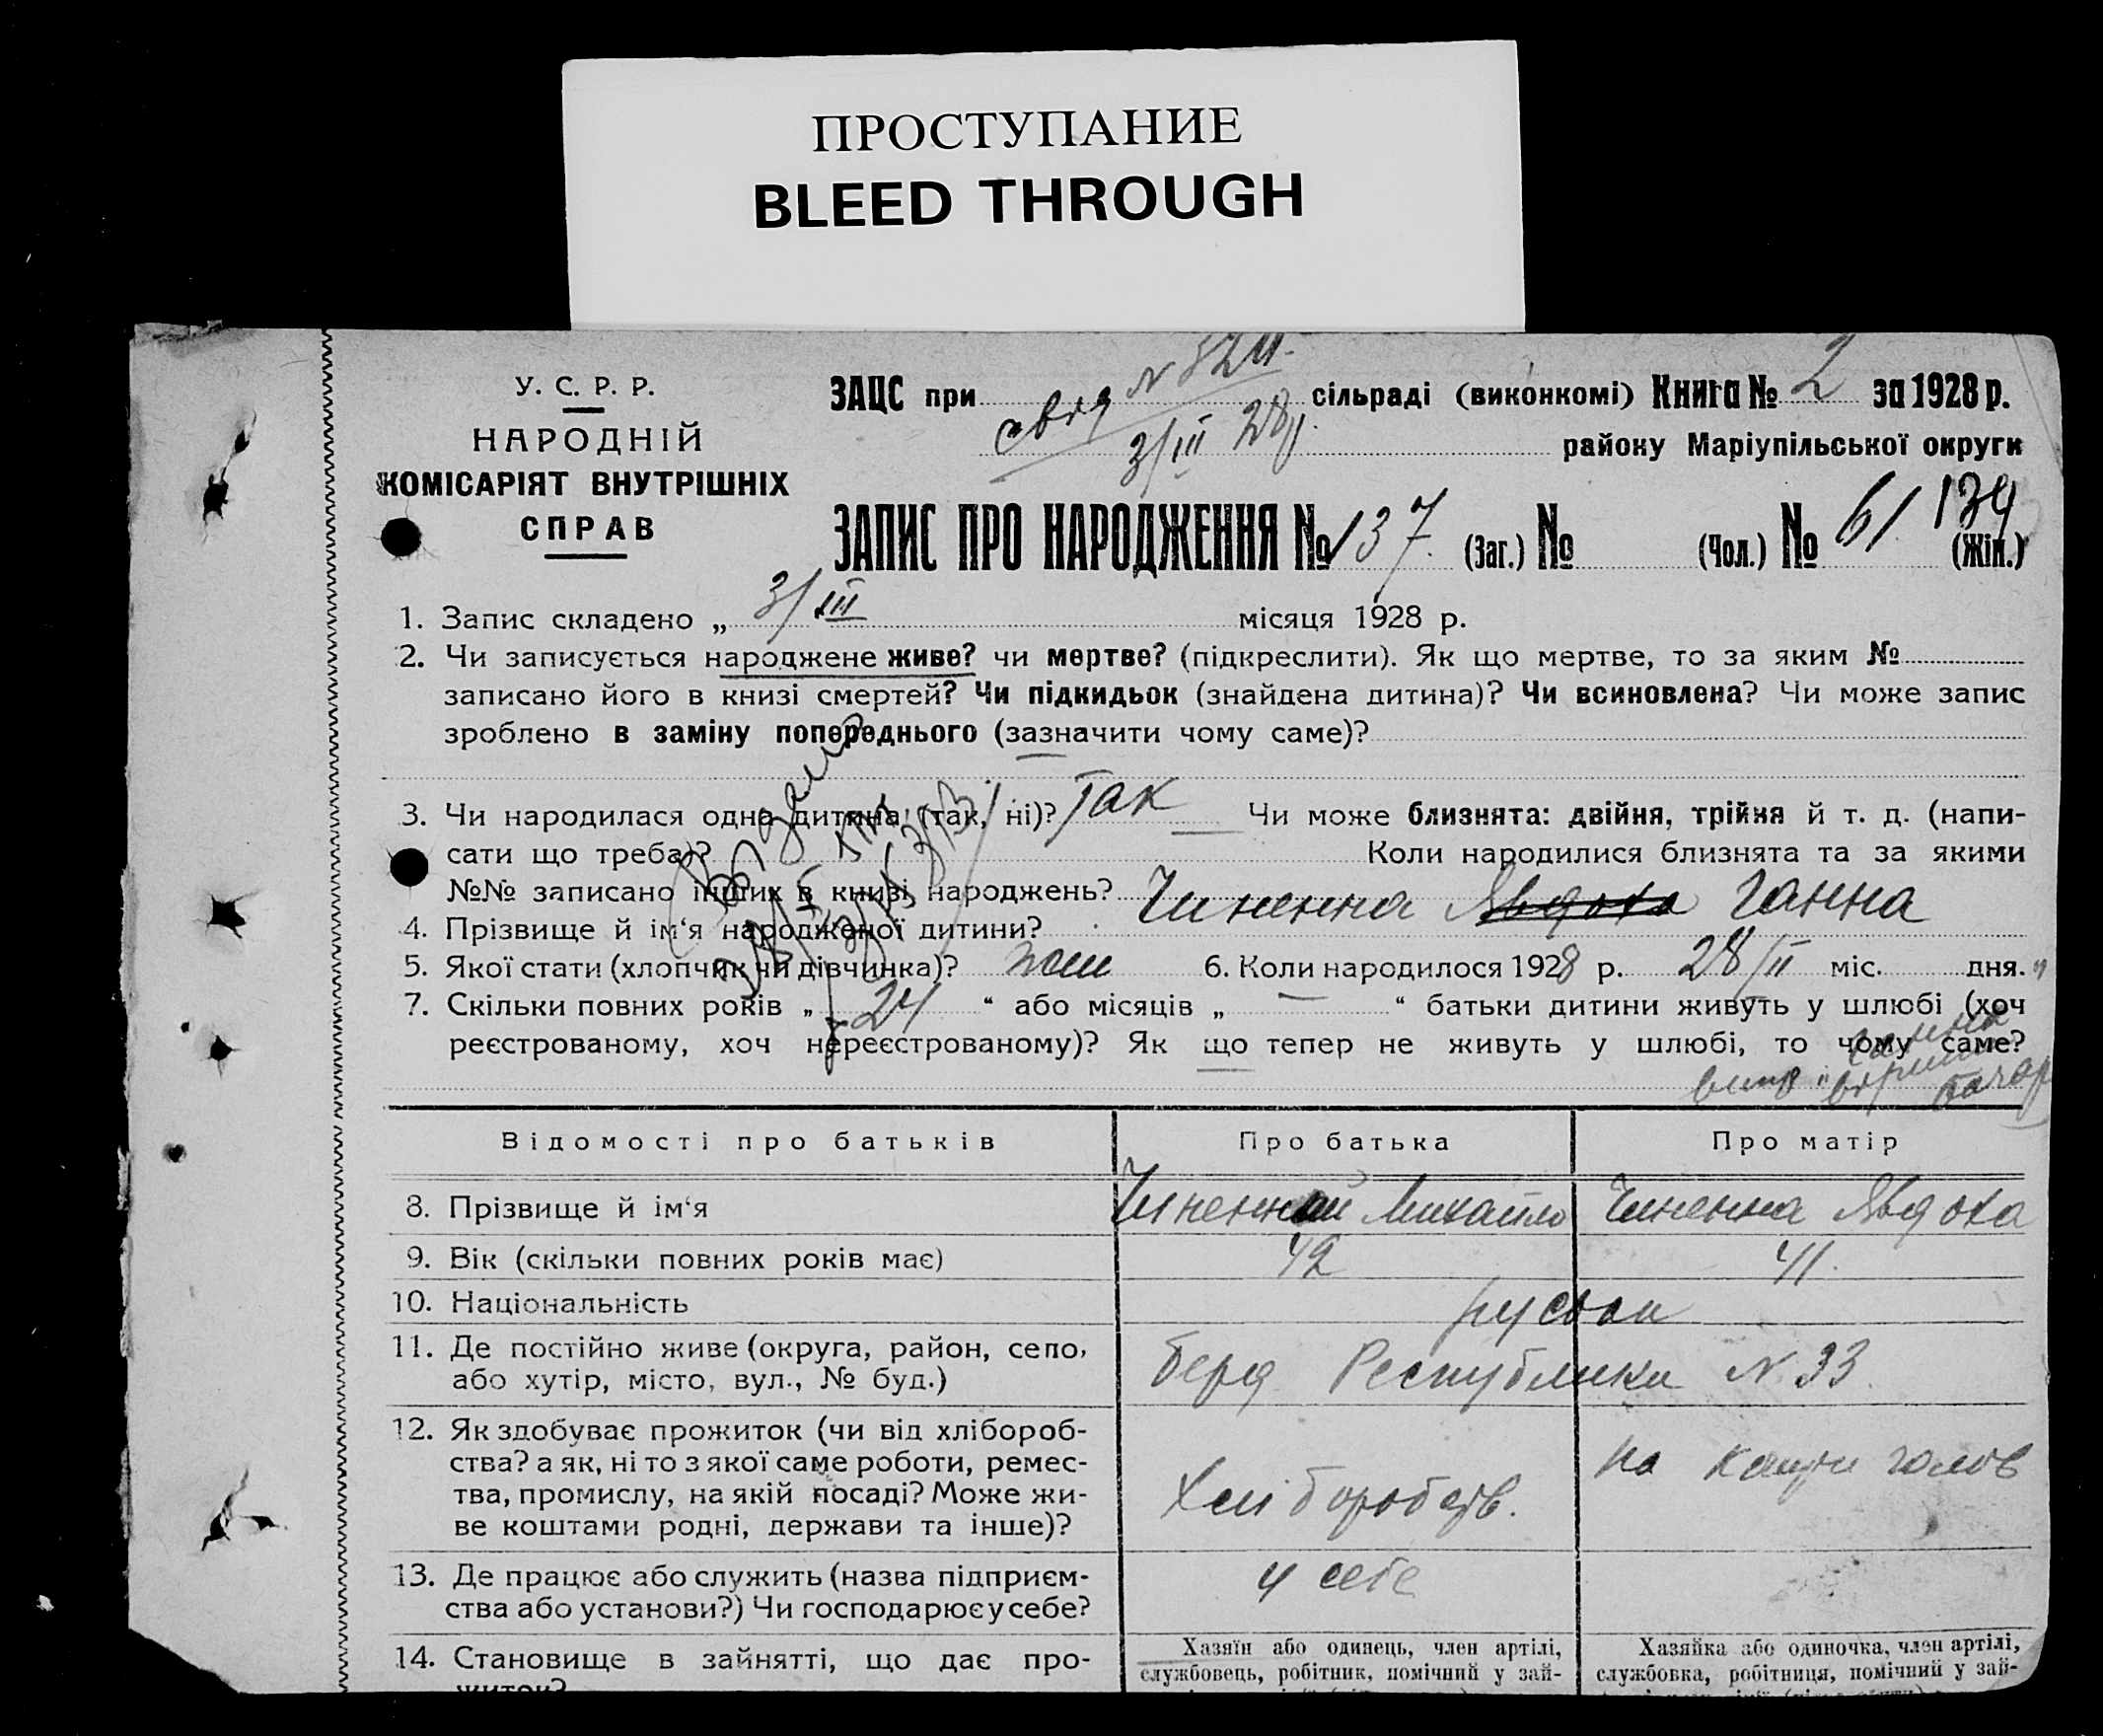 ПРОСТУПАНИЕ
BLEED THROUGH
У. С. Р. Р.
НАРОДНІЙ
КОМІСАРІЯТ ВНУТРІШНІХ
СПРАВ
ЗАЦС при свід N 824 сільраді (виконкомі) Книга № 2 за 1928 р.
3/III 28 р. району Маріупільської округи
139
ЗАПИС ПРО НАРОДЖЕННЯ № 137. (Заг.) № (Чол.) № 61. (Жін.)
1. Запис складено „ 3/III місяця 1928 р.
2. Чи записується народжене живе? чи мертве? (підкреслити). Як що мертве, то за яким №
записано його в книзі смертей? Чи підкидьок (знайдена дитина)? Чи всиновлена? Чи може запис
зроблено в заміну попереднього (зазначити чому саме)?
3. Чи народилася одна дитина (так, ні)? Так Чи може близнята: двійня, трійня й т. д. (напи-
сати що треба)? Коли народилися близнята та за якими
№№ записано інших в книзі народжень?
4. Прізвище й ім‘я народженої дитини? Чиненна Явдоха Ганна
5. Якої стати (хлопчик чи дівчинка)? жін 6. Коли народилося 1928 р. 28/II міс. дня.
7. Скільки повних років „ 24 “ або місяців „ — “ батьки дитини живуть у шлюбі (хоч
реєстрованому, хоч нереєстрованому)? Як що тепер не живуть у шлюбі, то чому саме?
Відомості про батьків Про батька Про матір
8. Прізвище й ім‘я Чиненний Михайло Чиненна Явдоха
9. Вік (скільки повних років має) 42 41.
10. Національність руськи
11. Де постійно живе (округа, район, село,
або хутір, місто, вул., № буд.) Берд Республики N. 33
12. Як здобуває прожиток (чи від хлібороб-
ства? а як, ні то з якої саме роботи, ремес-
тва, промислу, на якій посаді? Може жи-
ве коштами родні, держави та інше)? Хліборобств. на кошти голов
13. Де працює або служить (назва підприєм-
ства або установи?) Чи господарює у себе? у себе
14. Становище в зайнятті, що дає про-
житок?
Хазяїн або одинець, член артілі,
службовець, робітник, помічний у зай-
Хазяйка або одиночка, член артілі,
службовка, робітниця, помічний у зай-